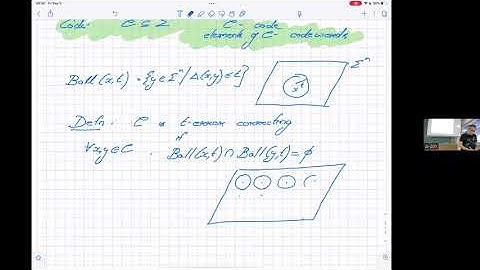 Code: C ⊆ Σ C - code
elements of C - codewords
Ball(x,t) = {y ∈ Σⁿ | Δ(x,y) ≤ t}
Σⁿ
x t
Defn: C is t-error correcting
if
∀x,y ∈ C . Ball(x,t) ∩ Ball(y,t) = ϕ